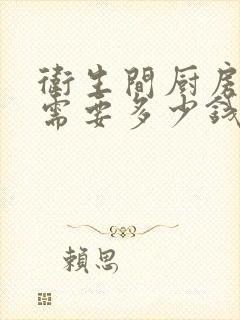 衛生間厨房
需要多少錢
賴思